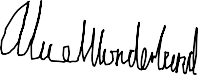 Alice Wunderlund